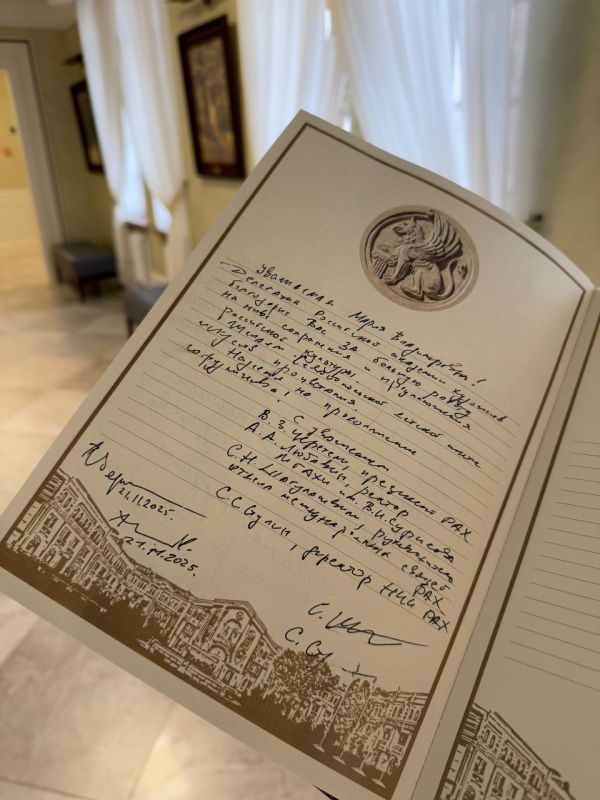 Уважаемая Мария Владимировна!
Делегация Российской академии художеств
благодарит Вас за большую работу
на ниве сохранения и приумножения
Российской культуры.
Желаем Севастопольской детской школе
искусств процветания
Надеемся, на продолжение
сотрудничества,
С уважением
В.З. Церетели, президент РАХ
А.А. Любавин, ректор
МГАХИ им. В.И. Сурикова
С.Н. , руководитель
отдела международных связей
РАХ
С.С. , директор НИИ РАХ
21.11.2025.
21.11.2025.